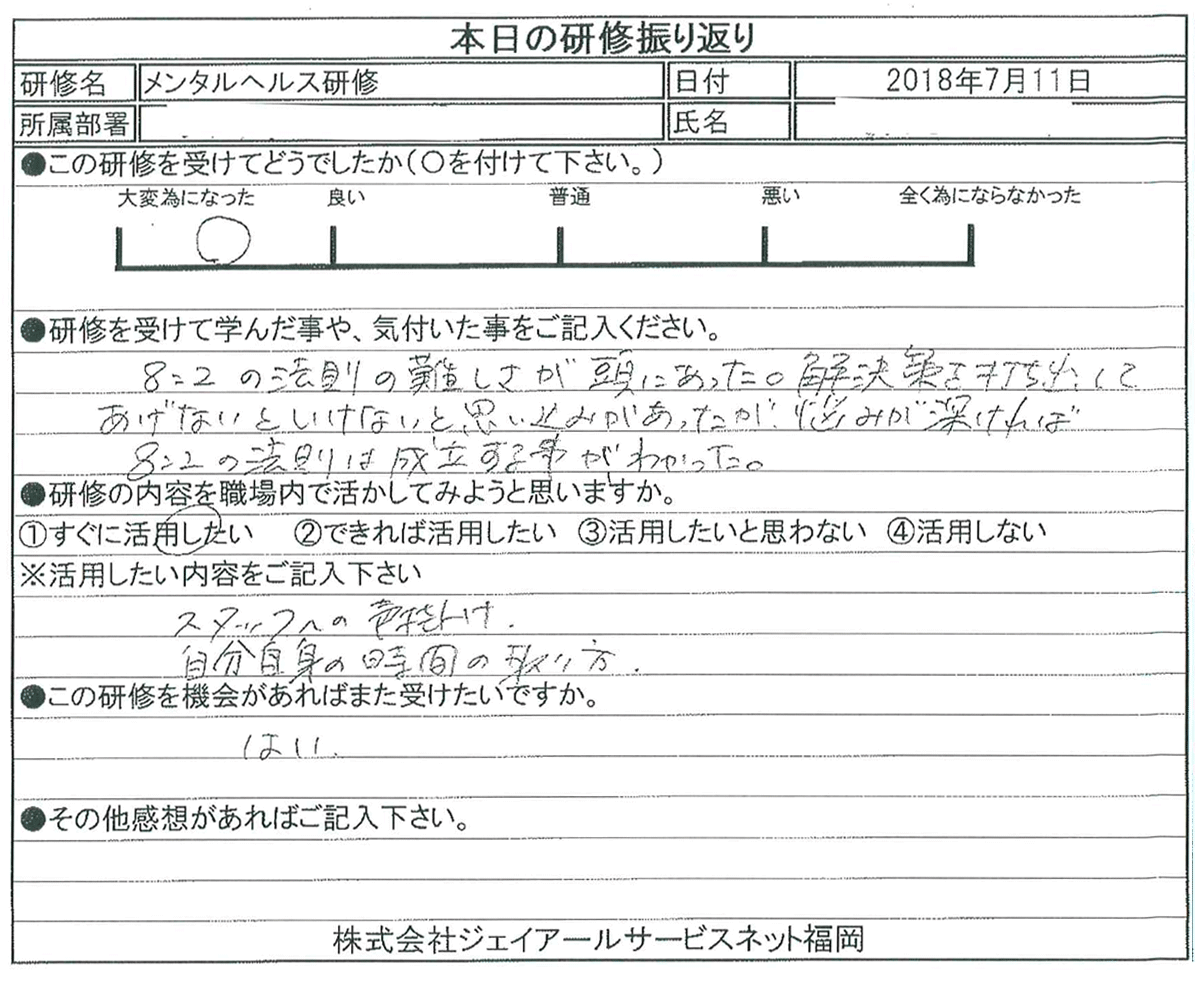 本日の研修振り返り
研修名 メンタルヘルス研修 日付 2018年7月11日
所属部署 氏名
●この研修を受けてどうでしたか(〇を付けて下さい。)
大変為になった 良い 普通 悪い 全く為にならなかった
●研修を受けて学んだ事や、気付いた事をご記入ください。
8:2の法則の難しさが頭にあった。解決策を打ち出して
あげないといけないと思い込みがあったが、悩みが深ければ
8:2の法則は成立する事がわかった。
●研修の内容を職場内で活かしてみようと思いますか。
①すぐに活用したい ②できれば活用したい ③活用したいと思わない ④活用しない
※活用したい内容をご記入下さい
スタッフへの声掛け.
自分自身の時間の取り方.
●この研修を機会があればまた受けたいですか。
はい.
●その他感想があればご記入下さい。
株式会社ジェイアールサービスネット福岡